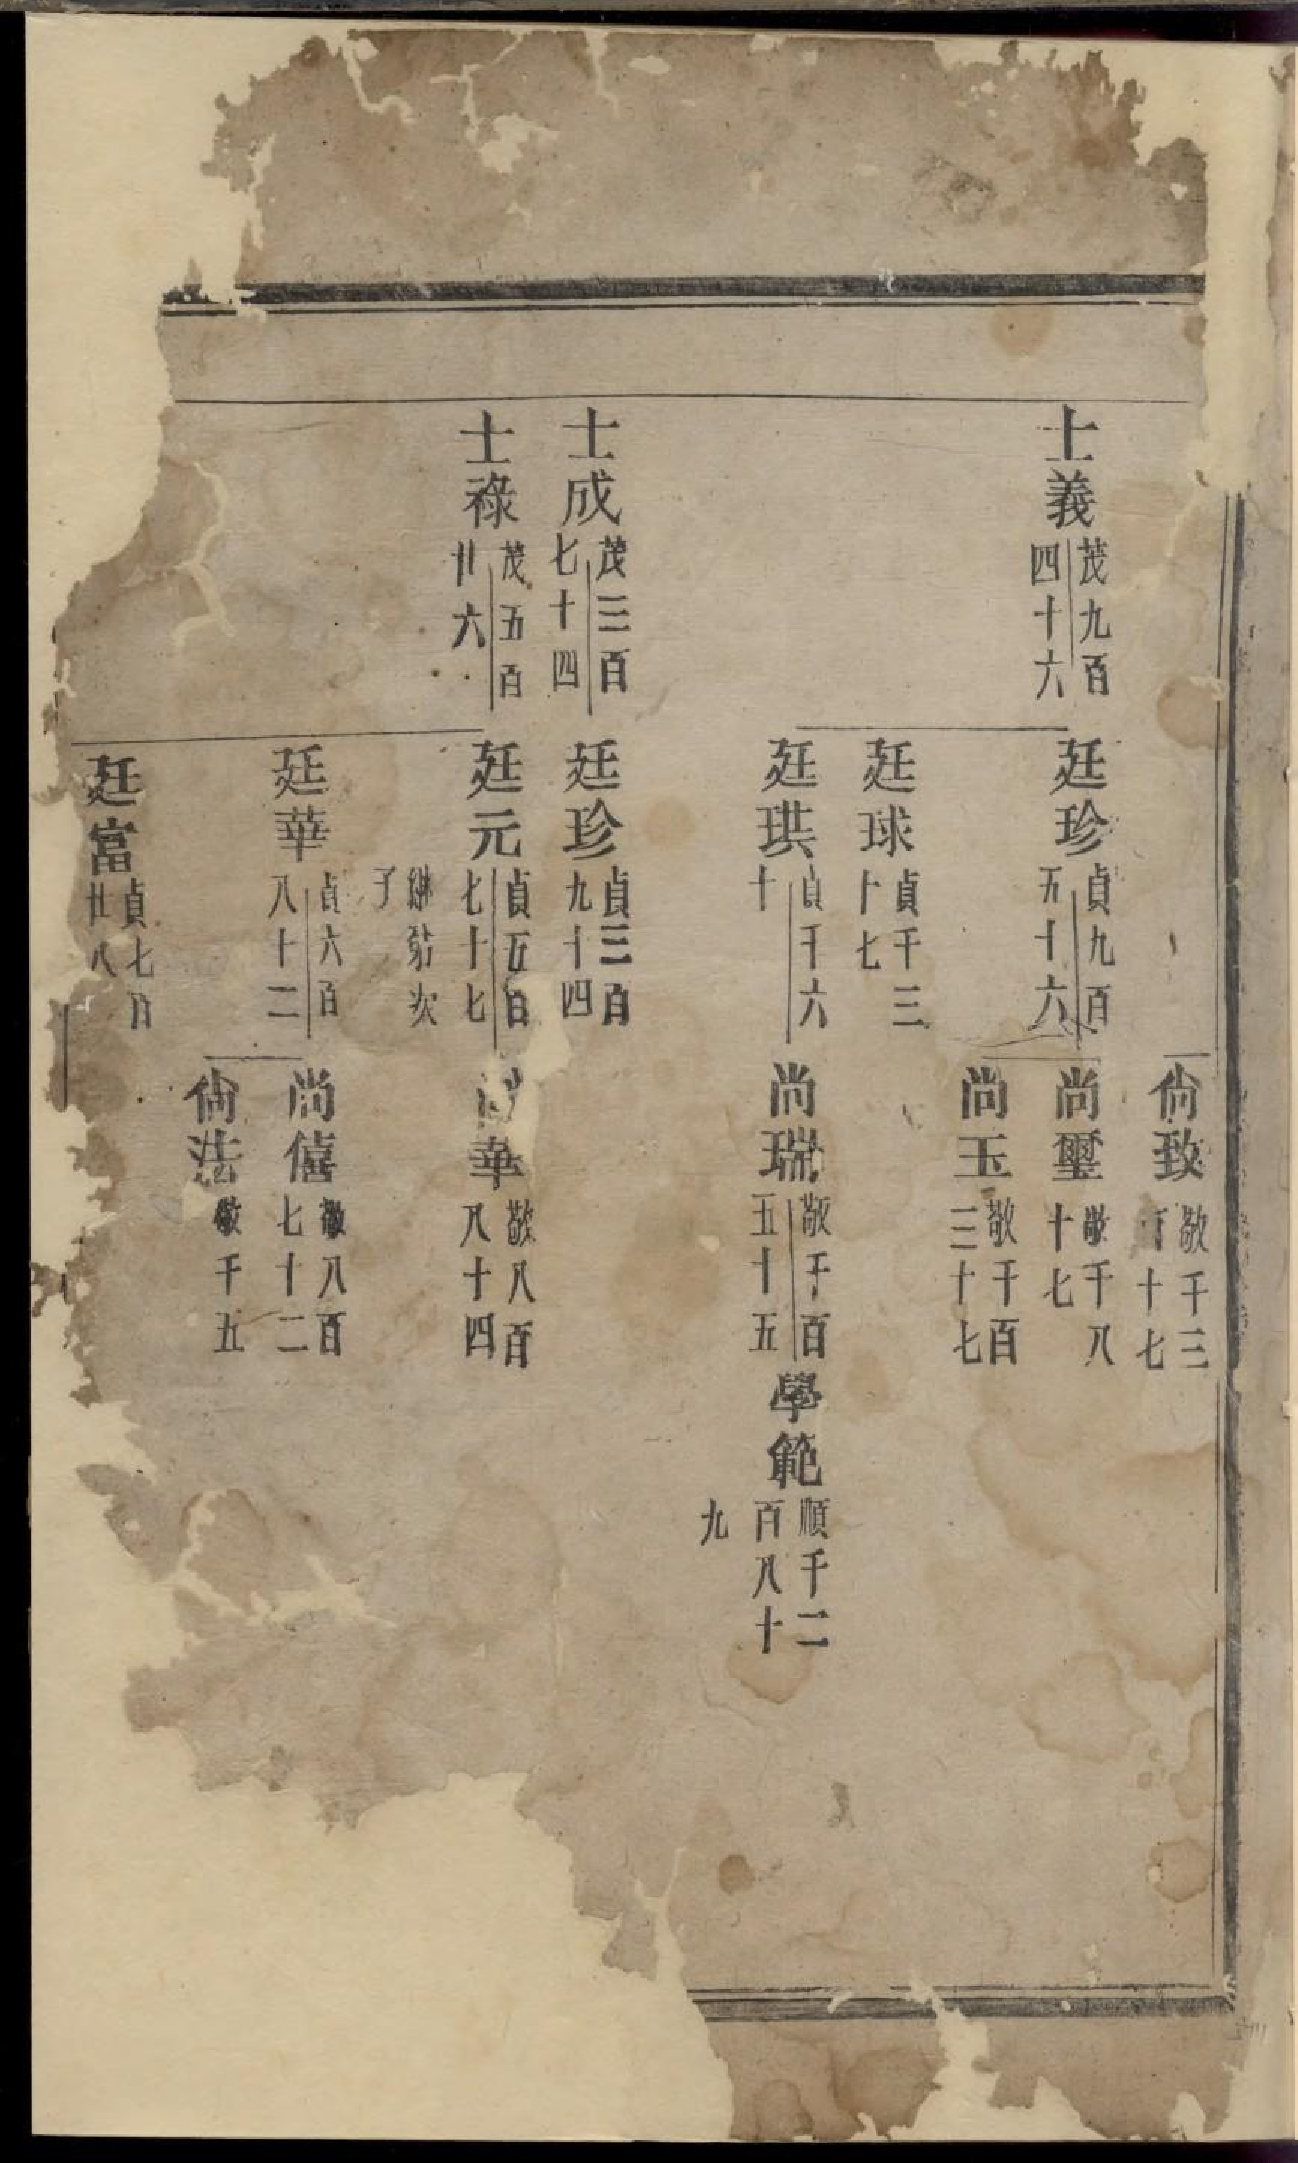 士義茂九百四十六
士成茂三百七十四
士祿茂五百廿六
廷珍貞九百五十六
廷球貞千三十七
廷琪貞千六十
廷珍貞三百九十四
廷元貞五百七十七
繼 次子
廷華貞六百八十二
廷富貞七百廿八
尚致敬千三百十七
尚璽敬千八十七
尚玉敬千百三十七
尚瑞敬千百五十五
華敬八百八十四
尚僖敬八百七十二
尚法敬千五
學範順千二百八十九